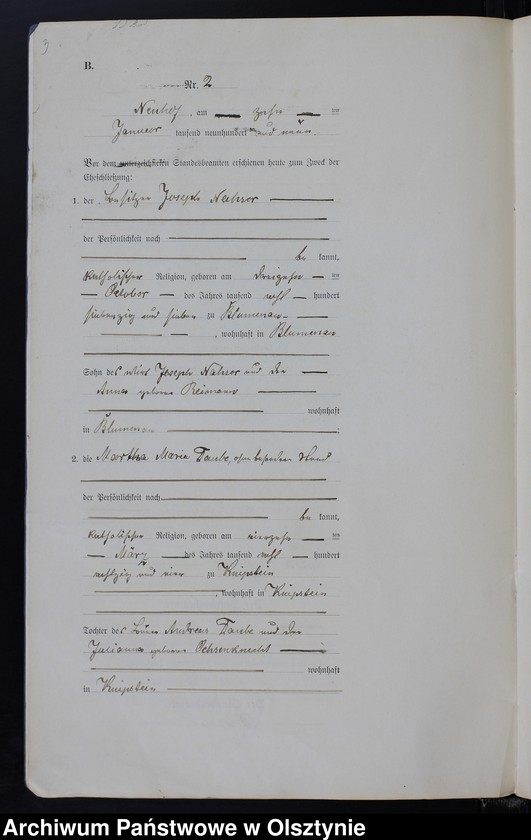 3
B.
Nr. 2
Neuhof, am zehn ten
Januar tausend neunhundert und neun.
Vor dem unterzeichneten Standesbeamten erschienen heute zum Zweck der
Eheschließung:
1. der Besitzer Joseph
der Persönlichkeit nach
be kannt,
katholischer Religion, geboren am dreizehn ten
October des Jahres tausend acht hundert
siebenzig und sieben zu Blumenau
, wohnhaft in Blumenau
Sohn des Joseph und der
Anna geborene Reimann
wohnhaft
in Blumenau ;
2. die Martha Maria Taube, ohne besonderen Stand
der Persönlichkeit nach
be kannt,
katholischer Religion, geboren am vierzehn ten
März des Jahres tausend acht hundert
achtzig und vier zu Knipstein
, wohnhaft in Knipstein
Tochter des Andreas Taube und der
Julianna geborene Ochsenknecht
wohnhaft
in Knipstein
Archiwum Państwowe w Olsztynie